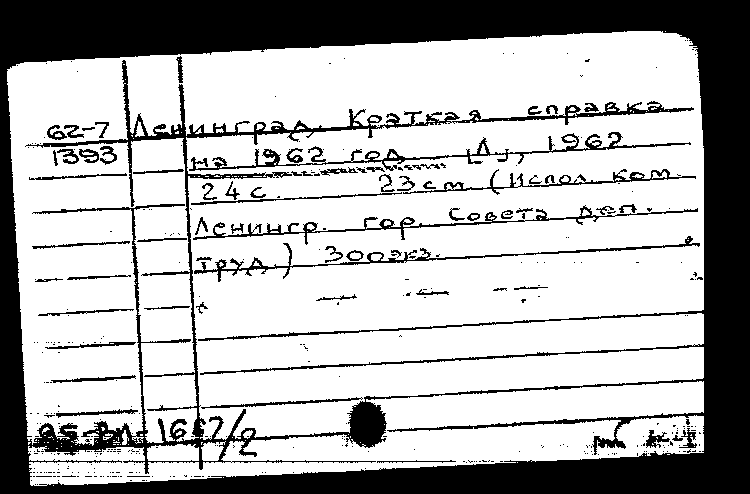 62-7 Ленинград. Краткая справка
1393 на 1962 год [Л.], 1962
24 с. 23 см (Испол. ком.
Ленингр. гор. Совета деп.
труд.) 300 экз.